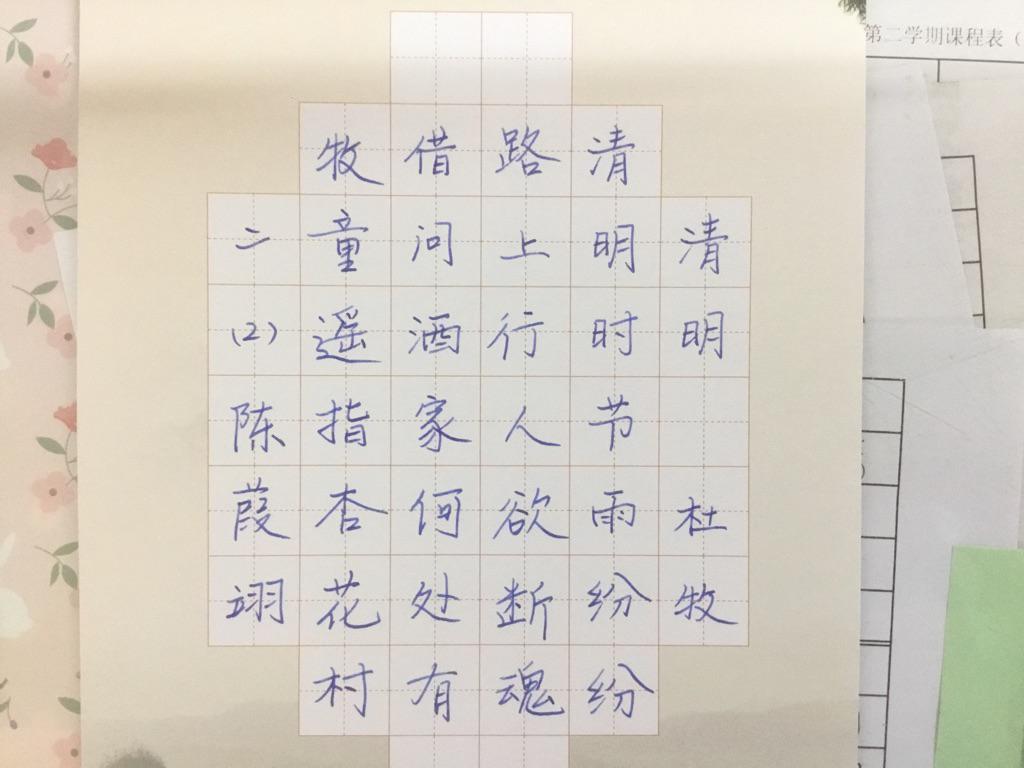 清明 杜牧
清明时节雨纷纷
路上行人欲断魂
借问酒家何处有
牧童遥指杏花村
二(2)陈葭翊
第二学期课程表(